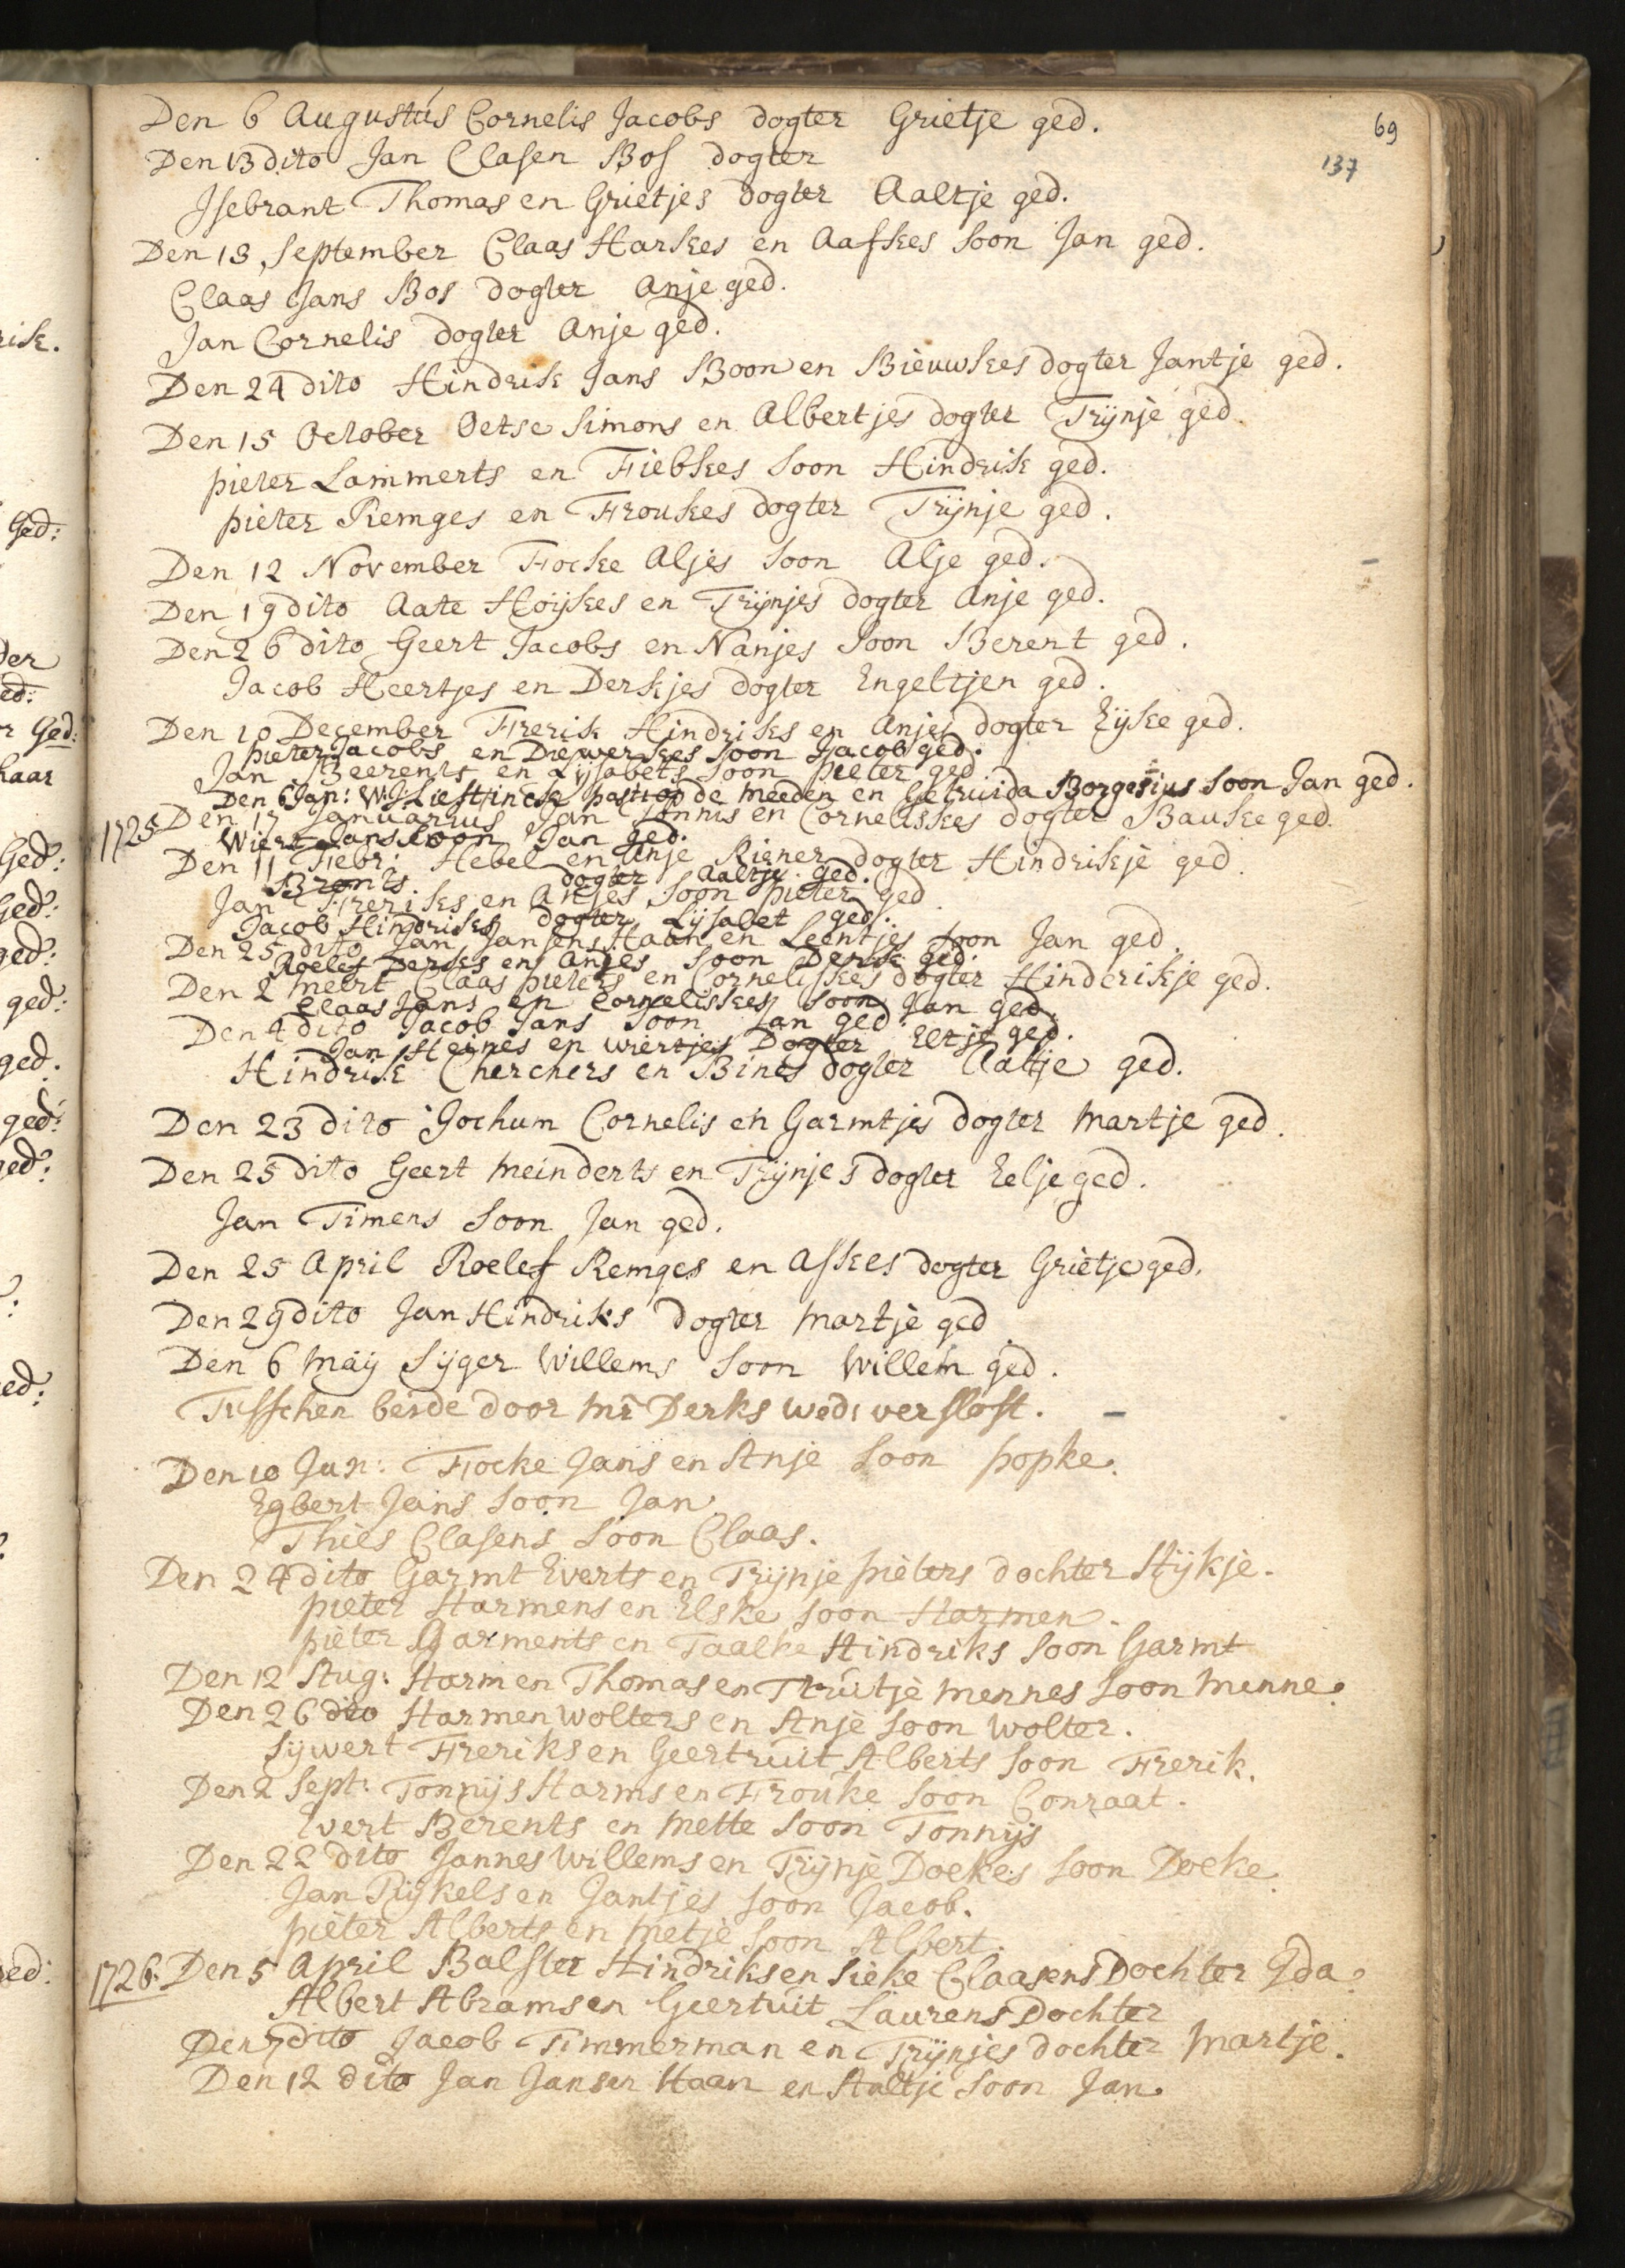 69
137
Den 6 Augustus Cornelis Jacobs dogter Grietje ged.
Den 13 dito Jan Clasen Bos dogter
Isebrant Thomas en Grietjes dogter Aaltje ged.
Den 13 September Claas Harkes en Aafkes soon Jan ged.
Claas Jans Bos dogter Anje ged.
Jan Cornelis dogter Anje ged.
Den 24 dito Hindrik Jans Boon en Bieuwkes dogter Jantje ged.
Den 15 October Oetse Simons en Albertjes dogter Trijnje ged.
pieter Lammerts en Fiebkes soon Hindrik ged.
pieter Remges en Froukes dogter Trijnje ged.
Den 12 November Focke Aljes soon Alje ged.
Den 19 dito Aate Hoijkes en Trijnjes dogter Anje ged.
Den 26 dito Geert Jacobs en Nanjes soon Berent ged.
Jacob Heertjes en Derkjes dogter Engeltjen ged.
Den 10 December Frerik Hindriks en Anjes dogter Eijke ged.
pieter Jacobs en Diewerkes soon Jacob ged.
Jan Beerents en Lijsabets soon pieter ged.
Den 6 Jan: W: J: Lieftinck past: op de Meeden en Getruida Borgesius soon Jan ged.
1725 Den 17 Januarius Jan Tonnis en Corneliskes dogter Bauke ged.
Wiert Jans soon Jan ged.
Den 11 Febr: Hebel en Anje Riener dogter Hindrikje ged.
Bronts dogter Aaltje ged.
Jan Freriks en Antjes soon pieter ged.
Jacob Hindriks dogter Lijsabet ged.
Den 25 dito Jan Jansens Haan en Leentjes soon Jan ged.
Roelef Derks en Anjes soon Derk ged.
Den 2 meert Claas pieters en Corneliskes dogter Hinderikje ged.
Claas Jans en Corneliskes soon Jan ged.
Den 4 dito Jacob Jans soon Jan ged.
Jan Heines en wiertjes Dogter Eltje ged.
Hindrik Cherchers en Bines dogter Aaltje ged.
Den 23 dito Jochum Cornelis en Garmtjes dogter Martje ged.
Den 25 dito Geert Meinderts en Trijnje's dogter Eelje ged.
Jan Timens soon Jan ged.
Den 25 April Roelef Remges en Afkes dogter Grietje ged.
Den 29 dito Jan Hindriks dogter Martje ged
Den 6 Maij Sijger Willems soon Willem ged.
Tusschen beide door Mr Derks wed: verslost.
Den 10 Jun: Focke Jans en Anje soon popke.
Egbert Jans soon Jan.
Thies Clasens soon Claas.
Den 24 dito Garmt Everts en Trijnje pieters dochter Hijkje.
pieter Harmens en Elske soon Harmen.
pieter Garments en Taalke Hindriks soon Garmt
Den 12 Aug: Harmen Thomas en Truitje Mennes soon Menne.
Den 26 dito Harmen Wolters en Anje soon Wolter.
Sijwert Freriks en Geertruit Alberts soon Frerik.
Den 2 Sept: Tonnijs Harms en Frouke soon Conraat.
Evert Berents en Mette soon Tonnijs
Den 22 dito Jannes Willems en Trijnje Doekes soon Doeke
Jan Rijkels en Jantjes soon Jacob.
pieter Alberts en Metje soon Albert.
1726. Den 5 April Balster Hindriks en Sieke Claasens Dochter Ida.
Albert Abrams en Geertuit Laurens Dochter
Den 7 dito Jacob Timmerman en Trijnjes dochter Martje.
Den 12 dito Jan Jansen Haan en Aaltje soon Jan.